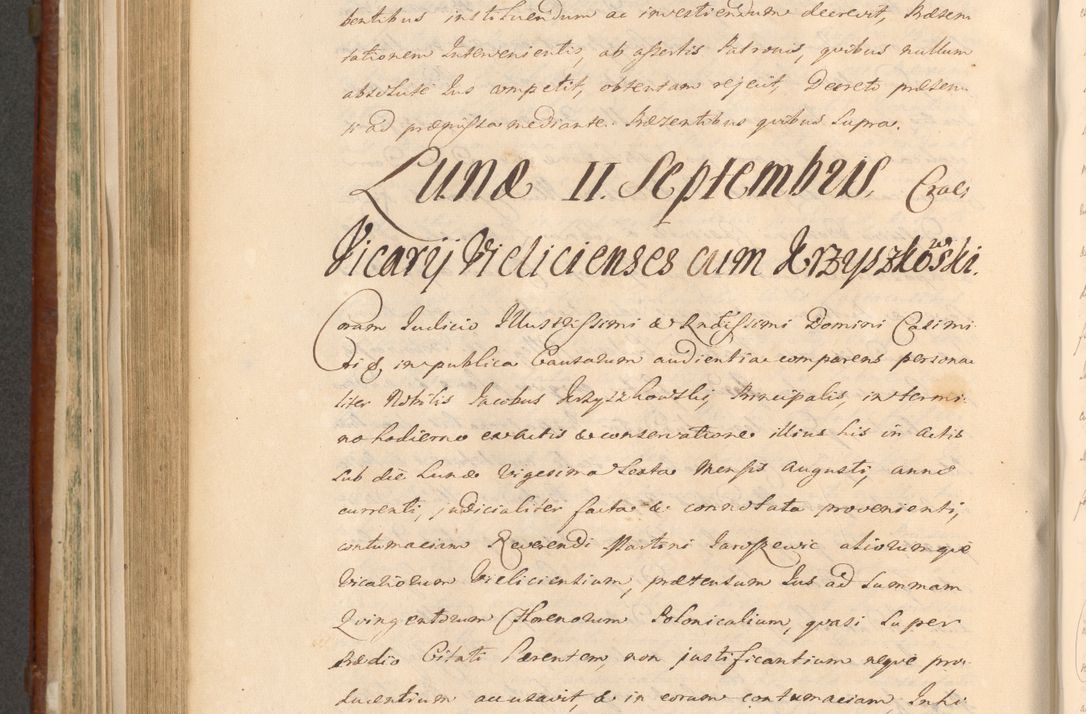 bentibus instituendum ac investiendum decrevit, Præsen
tationem Intervenientis, ab assertis Patronis, quibus nullum
absolute Ius competit, obtentam rejecit, Decreto præsen
ti ad præmissa mediante. Præsentibus quibus Supra.
Lunæ 11. Septembris.
Vicarij Vielicienses cum Krzyszkowski.
Coram Iudicio Illustrissimi & Rndissimi Domini Casimi
ri & in publica Causarum audientia comparens persona
liter Nobilis Jacobus Krzyszkowski, Principalis, in termi
no hodierno ex actis & conservatione illius his in Actis
sub die Lunæ Vigesima Sexta Mensis Augusti, anni
currenti, judicialiter facta & connotata provenienti,
contumaciam Reverendi Martini Jaroszewic aliorumque
Vicariorum Vieliciensium, prætensum Ius ad Summam
Quingentorum Florenorum Polonicalium, quasi super
Prædio Citati hærentem, non justificantium neque pro
ducentium accusavit, & in eorum contumaciam Inhi